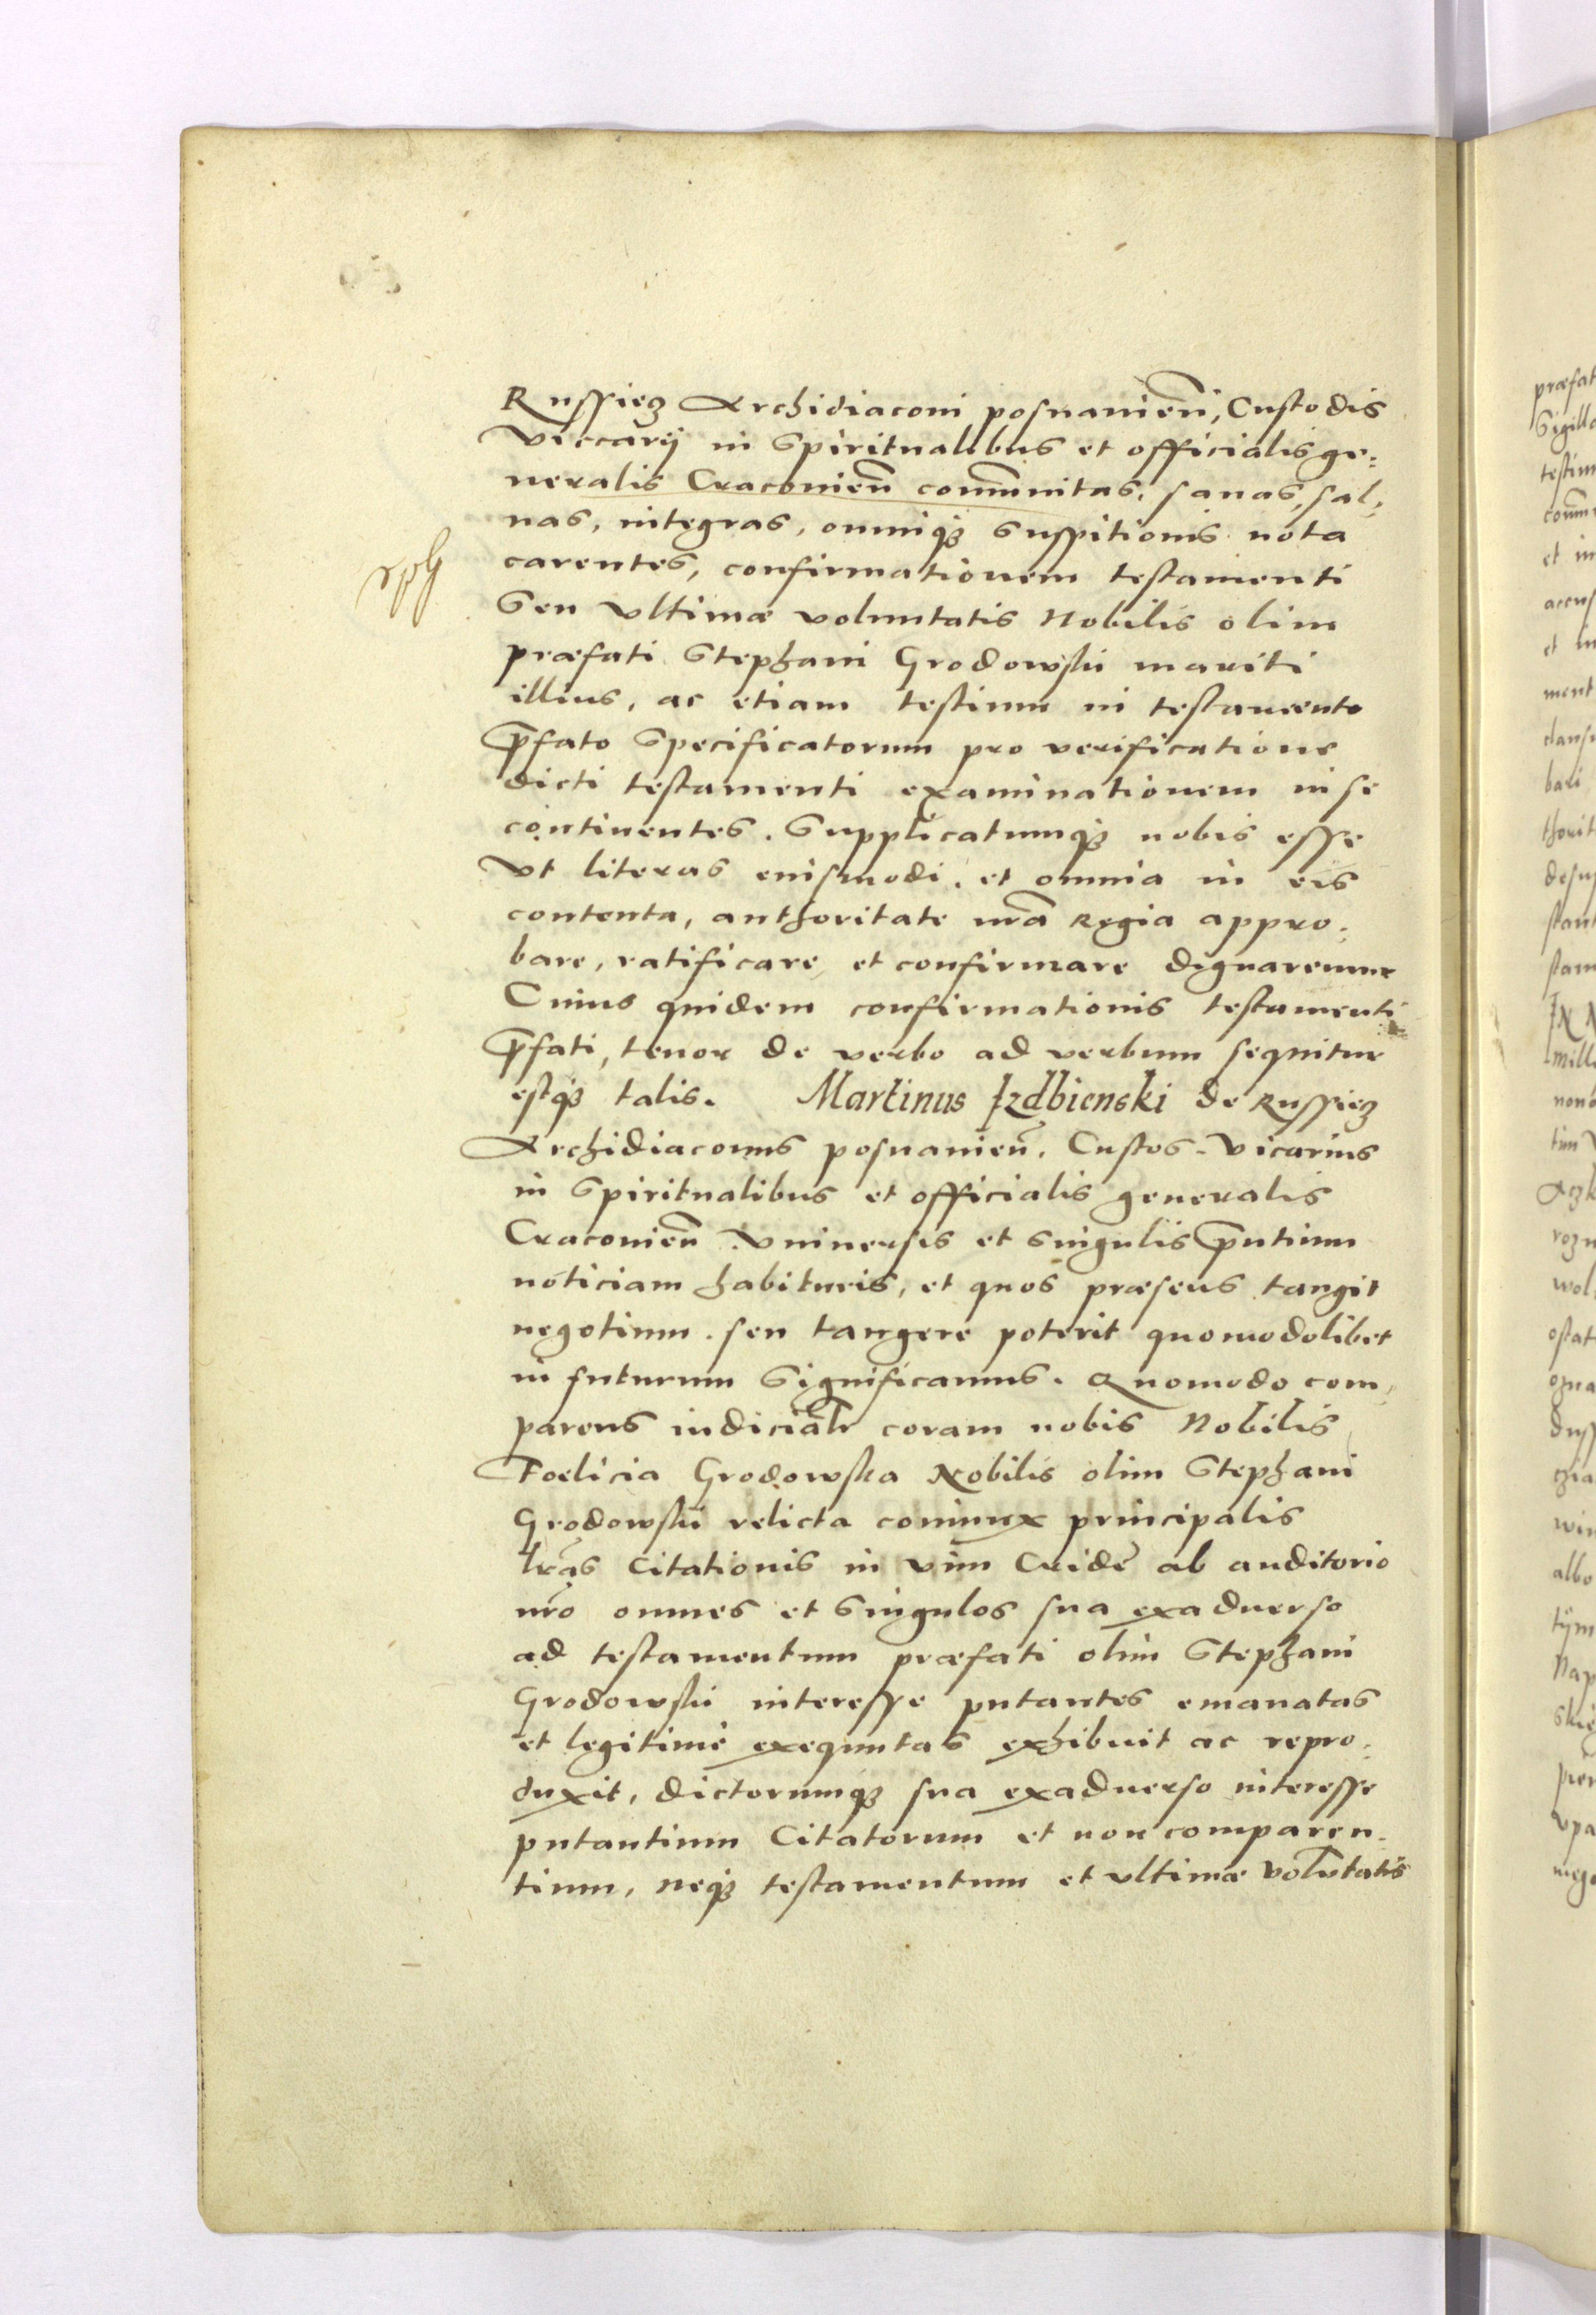 Russiecz Archidiaconi posnanień, Custodis
Viccarij in Spiritualibus et officialis ge:
neralis Cracovień comunitas, sanas, sal,
uas, integras, omniq; suspitionis nota
carentes, confirmationem testamenti
Seu vltimæ voluntatis Nobilis olim
præfati Stephani Grodowskii mariti
illius, ac etiam testium in testamento
p̄fato Specificatorum pro verificatione
dicti testamenti examinationem in se
continentes. Supplicatumq; nobis esse
Vt literas euismodi, et omnia in eis
contenta, authoritate nr̃a Regia appro:
bare, ratificare et confirmare dignaremur
Cuius quidem confirmationis testamenti
p̄fati, tenor de verbo ad verbum sequitur
estq; talis. Martinus Izdbienski de Russiecz
Archidiaconus posnanień, Custos, Vicarius
in Spiritualibus et officialis generalis
Cracovień Vniuersis et singulis p̄ntium
noticiam habituris, et quos præsens tangit
negotium, seu tangere poterit quomodolibet
in futurum Significamus. Quomodo com,
parens iudicialr̃ coram nobis Nobilis
Foelicia Grodowska Nobilis olim Stephani
Grodowskii relicta coniunx principalis
lr̃as Citationis in vim Cridę ab auditorio
nr̃o omnes et Singulos sua exaduerso
ad testamentum præfati olim Stephani
Grodowskii interesse putantes emanatas
et legitimè exequutas exhibuit ac repro:
duxit, dictorumq; sua exaduerso interesse
putantium Citatorum et non comparen:
tium, neq; testamentum et vltimæ volũtatis